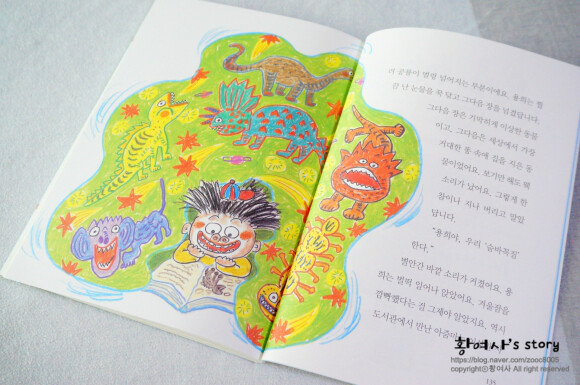 의 공룡이 벌렁 넘어지는 부분이에요. 용희는 찔
끔 난 눈물을 싹 닦고 그다음 장을 넘겼답니다.
그다음 장은 기억하게 이상한 동물
이고, 그다음은 세상에서 가장
거대한 똥 속에 집을 지은 동
물이었어요. 보기만 해도 웩
소리가 났어요. 그렇게 한
참이나 지나 버리고 말았
답니다.
"용희야, 우리 '숨바꼭질'
한다."
별안간 바깥 소리가 커졌어요. 용
희는 벌떡 일어나 앉았어요. 겨울잠을
깜빡했다는 걸 그제야 알았지요. 역시
도서관에서 만난 아줌마
황여사's story
https://blog.naver.com/zooc8005
copyrightⓒ황여사 All right reserved